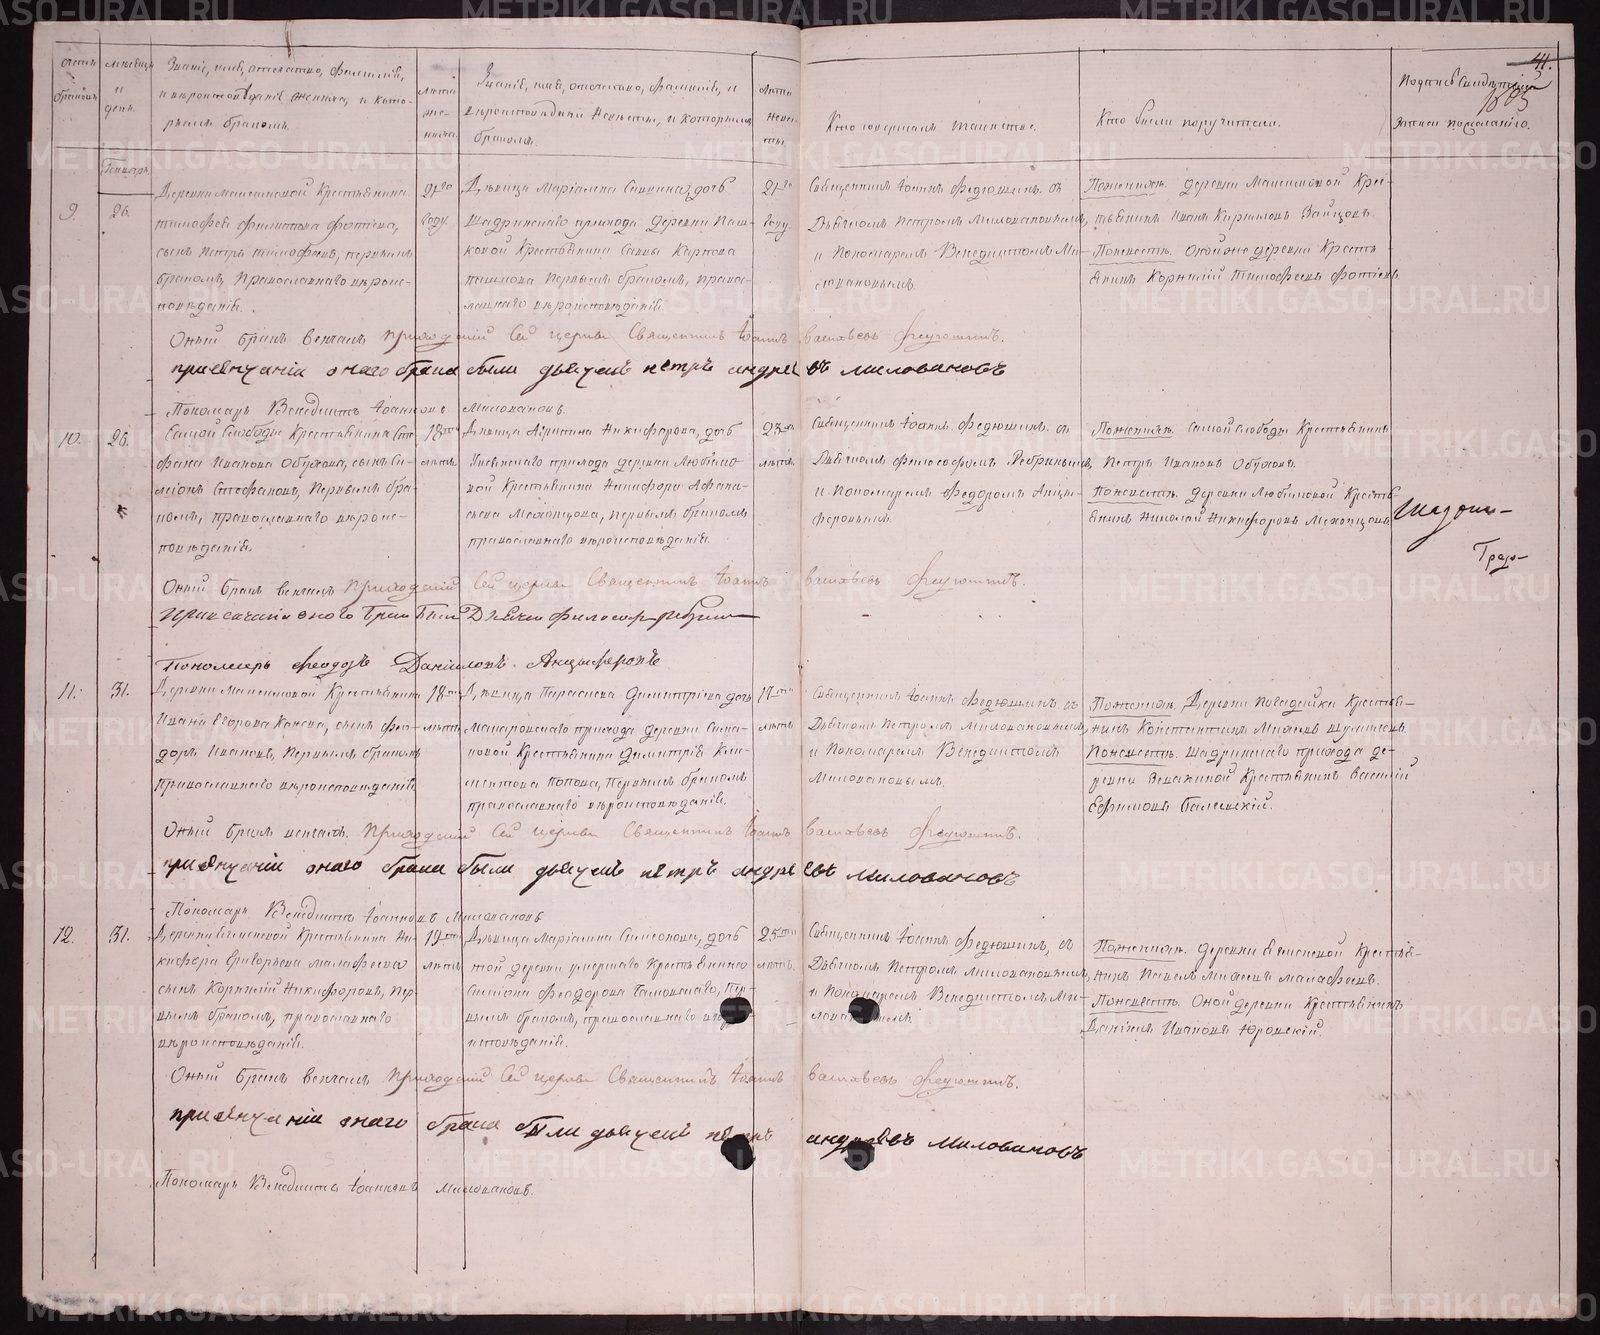 Счетъ браковъ.
Мѣсяцъ и день.
Званіе, имя, отечество, фамилія,
и вѣроисповѣданіе жениха, и кото-
рымъ бракомъ.
Лѣта же-
ниха.
Званіе, имя, отечество, фамилія, и
вѣроисповѣданіе невѣсты, и которымъ
бракомъ.
Лѣта невѣ-
сты.
Кто совершалъ таинство.
Кто были поручители.
Подпись свидѣтелей
записи по желанію.
41.
Генварь.
9.
26.
Деревни Максимовой Крестьянина
Тимофея Филипова Фотіева,
сынъ Петръ Тимофеевъ, первымъ
бракомъ, Православнаго вѣроис-
повѣданія.
21го
году.
Дѣвица Маріамна Саввина, дочь
Шадринскаго прихода деревни Паш-
ковой Крестьянина Саввы Карпова
Пашкова первымъ бракомъ, право-
славнаго вѣроисповѣданія.
21го
году.
Священникъ Іоаннъ Федюшинъ съ
Дьячкомъ Петромъ Миловановымъ,
и Пономаремъ Венедиктомъ Ми-
ловановымъ.
По женихѣ. деревни Максимовой Крес-
тьянинъ Иванъ Кириловъ Зайцовъ.
По невѣстѣ. Оной же деревни Кресть-
янинъ Корнилій Тимофеевъ Фотіевъ.
Оный бракъ венчалъ приходскій сей церкви Священникъ Іоаннъ Васильевъ Федюшинъ.
при венчаніи онаго брака были дьячекъ петръ андреевъ миловановъ
Пономарь Венедиктъ Іоанновъ Миловановъ.
10.
26.
Самой слободы Крестьянина Сте-
фана Иванова Обухова, сынъ Си-
меонъ Стефановъ, первымъ бра-
комъ, православнаго вѣроис-
повѣданія.
18ти
лѣтъ.
Дѣвица Христина Никифорова, дочь
прихода деревни Любимо-
вой Крестьянина Никифора Афана-
сьева Мехонцова, первымъ бракомъ
православнаго вѣроисповѣданія.
23хъ
лѣтъ.
Священникъ Іоаннъ Федюшинъ съ
Дьячкомъ Философомъ Ребринымъ,
и Пономаремъ Федоромъ Анци-
феровымъ.
По женихѣ. самой слободы Крестьянинъ
Петръ Ивановъ Обуховъ.
По невѣстѣ. деревни Любимовой Кресть-
янинъ Николай Никифоровъ Мехонцовъ.
Оный бракъ венчалъ Приходскій сей церкви Священникъ Іоаннъ Васильевъ Федюшинъ.
При венчаніи оного брака были Дьячекъ Философъ Ребринъ
Пономарь Феодоръ Даниловъ Анцыферовъ
11.
31.
Деревни Максимовой Крестьянина
Ивана Егорова Конева, сынъ Фе-
доръ Ивановъ, первымъ бракомъ
Православнаго вѣроисповѣданія.
18ти
лѣтъ.
Дѣвица Параскева Димитріева дочь
Макаровскаго прихода деревни Сима-
новой Крестьянина Димитрія Кли-
ментова Попова, первымъ бракомъ
православнаго вѣроисповѣданія.
17ти
лѣтъ
Священникъ Іоаннъ Федюшинъ съ
Дьячкомъ Петромъ Миловановымъ,
и Пономаремъ Венедиктомъ
Миловановымъ.
По женихѣ. Деревни Крестья-
нинъ Константинъ
По невѣстѣ. Шадринскаго прихода де-
ревни Крестьянинъ Василій
Ефимовъ
Оный бракъ венчалъ. Приходскій сей церкви Священникъ Іоаннъ Васильевъ Федюшинъ.
при венчаніи онаго брака были дьячекъ петръ андреевъ миловановъ
Пономарь Венедиктъ Іоанновъ Миловановъ
12.
31.
Деревни Крестьянина Ни-
кифора Григорьева Малафеева
сынъ Корнилій Никифоровъ, пер-
вымъ бракомъ, православнаго
вѣроисповѣданія.
19ти
лѣтъ
Дѣвица Маріамна Симеонова, дочь
той деревни умершаго Крестьянина
Симіона Феодорова пер-
вымъ бракомъ, православнаго вѣро-
исповѣданія.
25ти
лѣтъ.
Священникъ Іоаннъ Федюшинъ, съ
Дьячкомъ Петромъ Миловановымъ,
и Пономаремъ Венедиктомъ Ми-
ловановымъ.
По женихѣ. деревни Крестья-
нинъ Павелъ Малафеевъ.
По невѣстѣ. Оной деревни Крестьянинъ
Даніилъ Ивановъ Юровскій.
Оный бракъ венчалъ Приходскій сей церкви Священникъ Іоаннъ Васильевъ Федюшинъ.
при венчаніи онаго брака были дьячекъ петръ андреевъ миловановъ
Пономарь Венедиктъ Іоанновъ Миловановъ.
METRIKI.GASO-URAL.RU